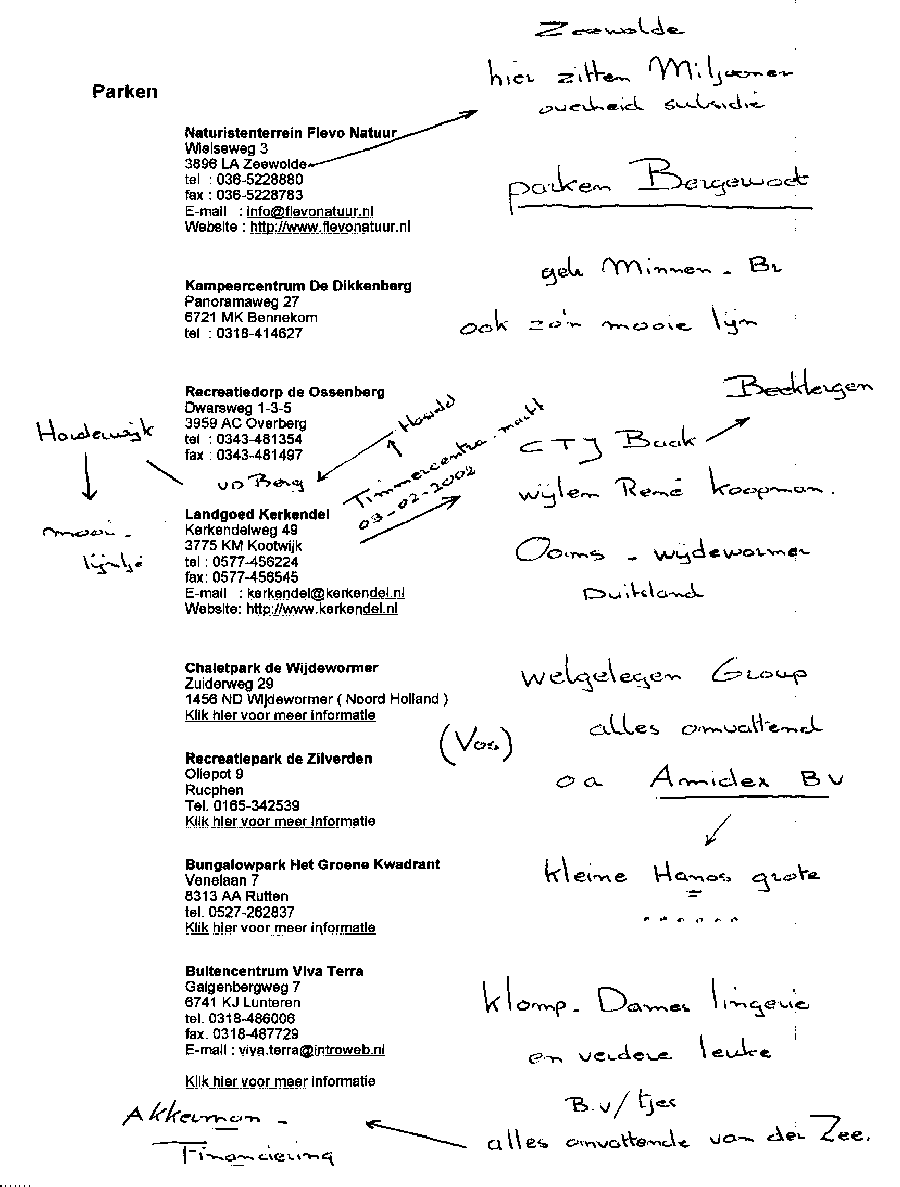 Zeewolde
hier zitten Miljoenen
overheid subsidie
Parken
Naturistenterrein Flevo Natuur
Wielseweg 3
3896 LA Zeewolde
tel : 036-5228880
fax : 036-5228783
E-mail : info@flevonatuur.nl
Website : http://www.flevonatuur.nl
parken
Kampeercentrum De Dikkenberg
Panoramaweg 27
6721 MK Bennekom
tel : 0318-414627
geh Minnen - Br
ook zo'n mooie lijn
Recreatiedorp de Ossenberg
Dwarsweg 1-3-5
3959 AC Overberg
tel : 0343-481354
fax : 0343-481497
Harderwijk
mooi -
lijntje
vd Berg
Timmercentra - macht
03-02-2002
Beekbergen
CTJ Buuk
wijlen René Koopman.
Ooms - wijdewormer
Duitsland
Landgoed Kerkendel
Kerkendelweg 49
3775 KM Kootwijk
tel : 0577-456224
fax: 0577-456545
E-mail : kerkendel@kerkendel.nl
Website: http://www.kerkendel.nl
Chaletpark de Wijdewormer
Zuiderweg 29
1456 ND Wijdewormer ( Noord Holland )
Klik hier voor meer informatie
welgelegen Group
alles omvattend
(Vos)
o a Amidex BV
Recreatiepark de Zilverden
Oliepot 9
Rucphen
Tel. 0165-342539
Klik hier voor meer informatie
Bungalowpark Het Groene Kwadrant
Venelaan 7
8313 AA Rutten
tel. 0527-262837
Klik hier voor meer informatie
kleine Hanos grote
......
Buitencentrum Viva Terra
Galgenbergweg 7
6741 KJ Lunteren
tel. 0318-486006
fax. 0318-487729
E-mail : viva.terra@introweb.nl
Klik hier voor meer informatie
klomp - Dames lingerie
en verdere leuke
B.v/tjes
alles omvattende van der Zee.
Akkerman -
Financiering